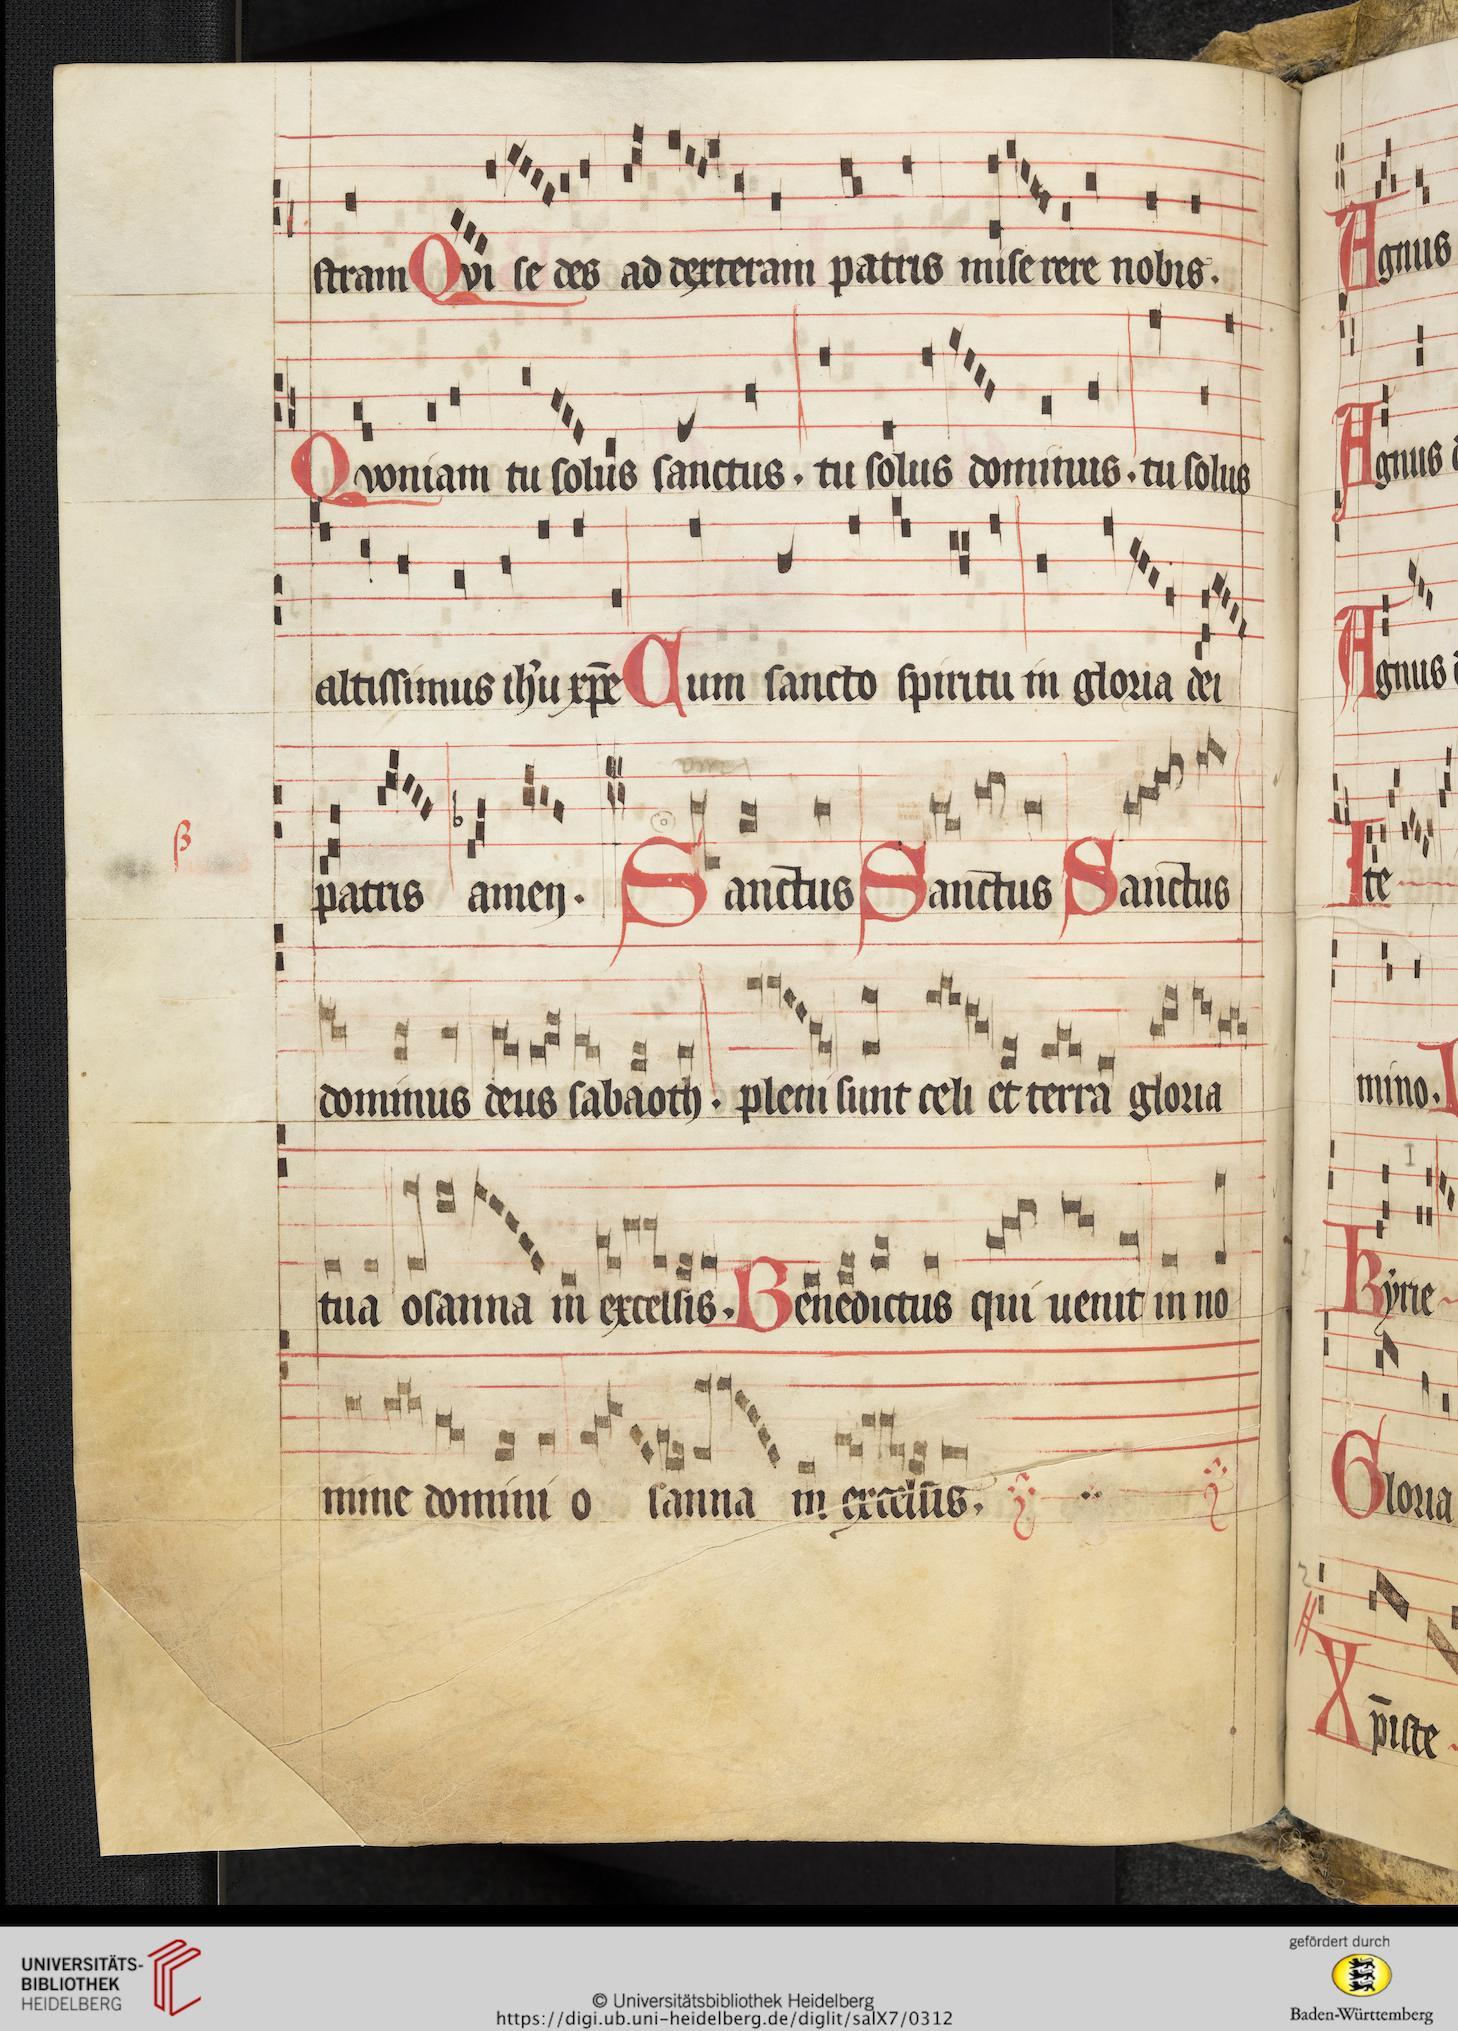 stram Qvi se des ad dexteram patris mise rere nobis.
Qvoniam tu solus sanctus. tu solus dominus. tu solus
altissimus ih'u xp̄e Cum sancto spiritu in gloria dei
patris amen. Sanctus Sanctus Sanctus
dominus deus sabaoth. pleni sunt celi et terra gloria
tua osanna in excelsis. Benedictus qui uenit in no
mine domini o sanna in excelsis.
Agnus
Agnus
Agnus
Ite
mino.
Kyrie
Gloria
Xp̄iste
UNIVERSITÄTS-
BIBLIOTHEK
HEIDELBERG
© Universitätsbibliothek Heidelberg
https://digi.ub.uni-heidelberg.de/diglit/salX7/0312
gefördert durch
Baden-Württemberg